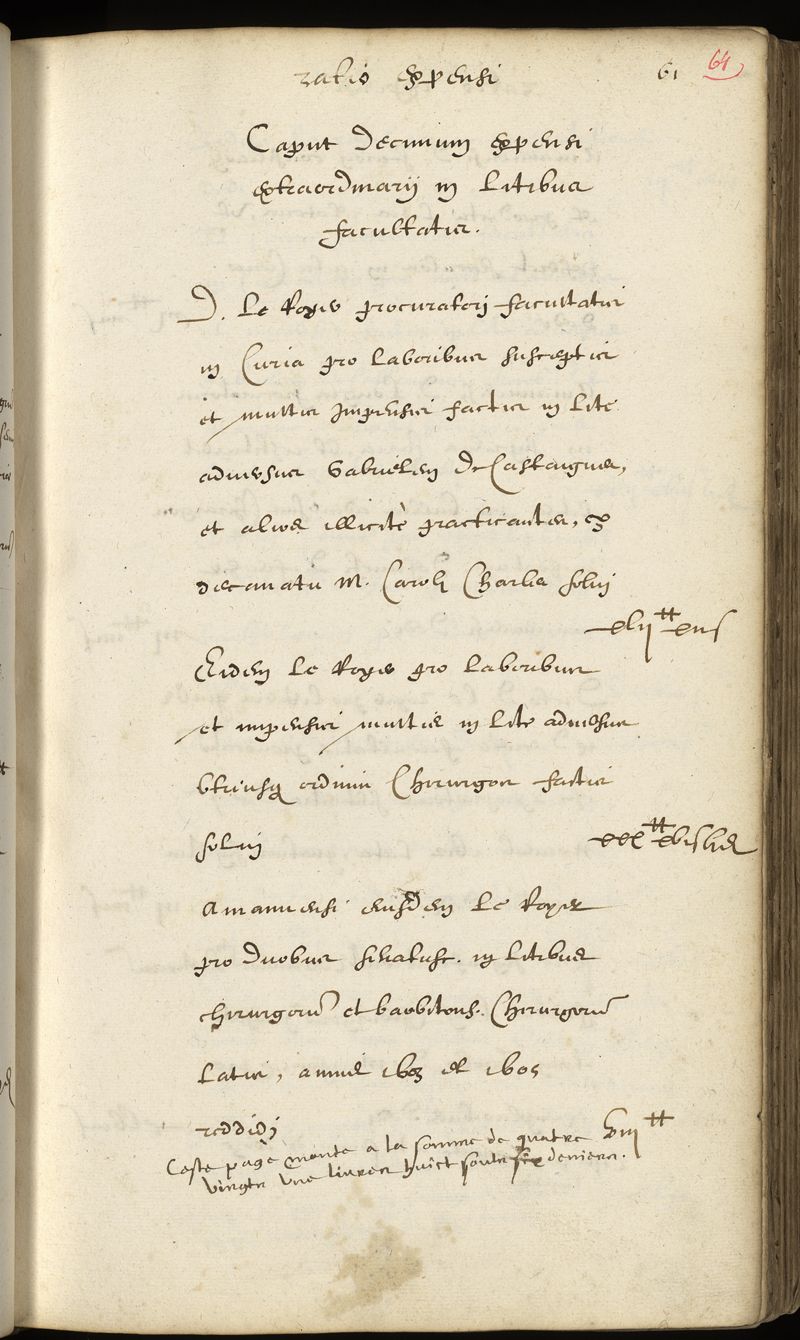 ratio expensi 61 64
Caput Decimum expensi
extraordinarij in Litibus
facultatis.
D. Le Royes procuratorj facultatis
in Curia pro Laboribus susceptis
et multis Impensis factis in Lite
aduersus Gabrielem De Castaignes,
et alios illicitè practicantes, ex
decanatu M. Caroli Charles soluj
Eidem Le Royes pro Laboribus
et impensis multis in Lite aduersus
vtriusq ordinis Chirurgos factis
soluj
Amanuensi eiusdem Le Royer
pro Duobus senatusc. in Litibus
chirurgorū et barbitons. Chirurgorū
Latis, annis 1603 et 1605
reddidj viij ₶
Ceste page monte a la somme de quatre
vingts vne liures huict soulz six deniers.